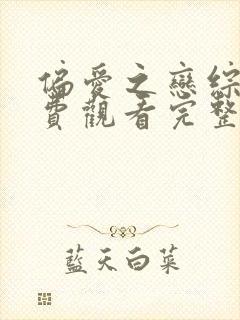 偏愛之戀綜
費觀看完整
藍天白菜